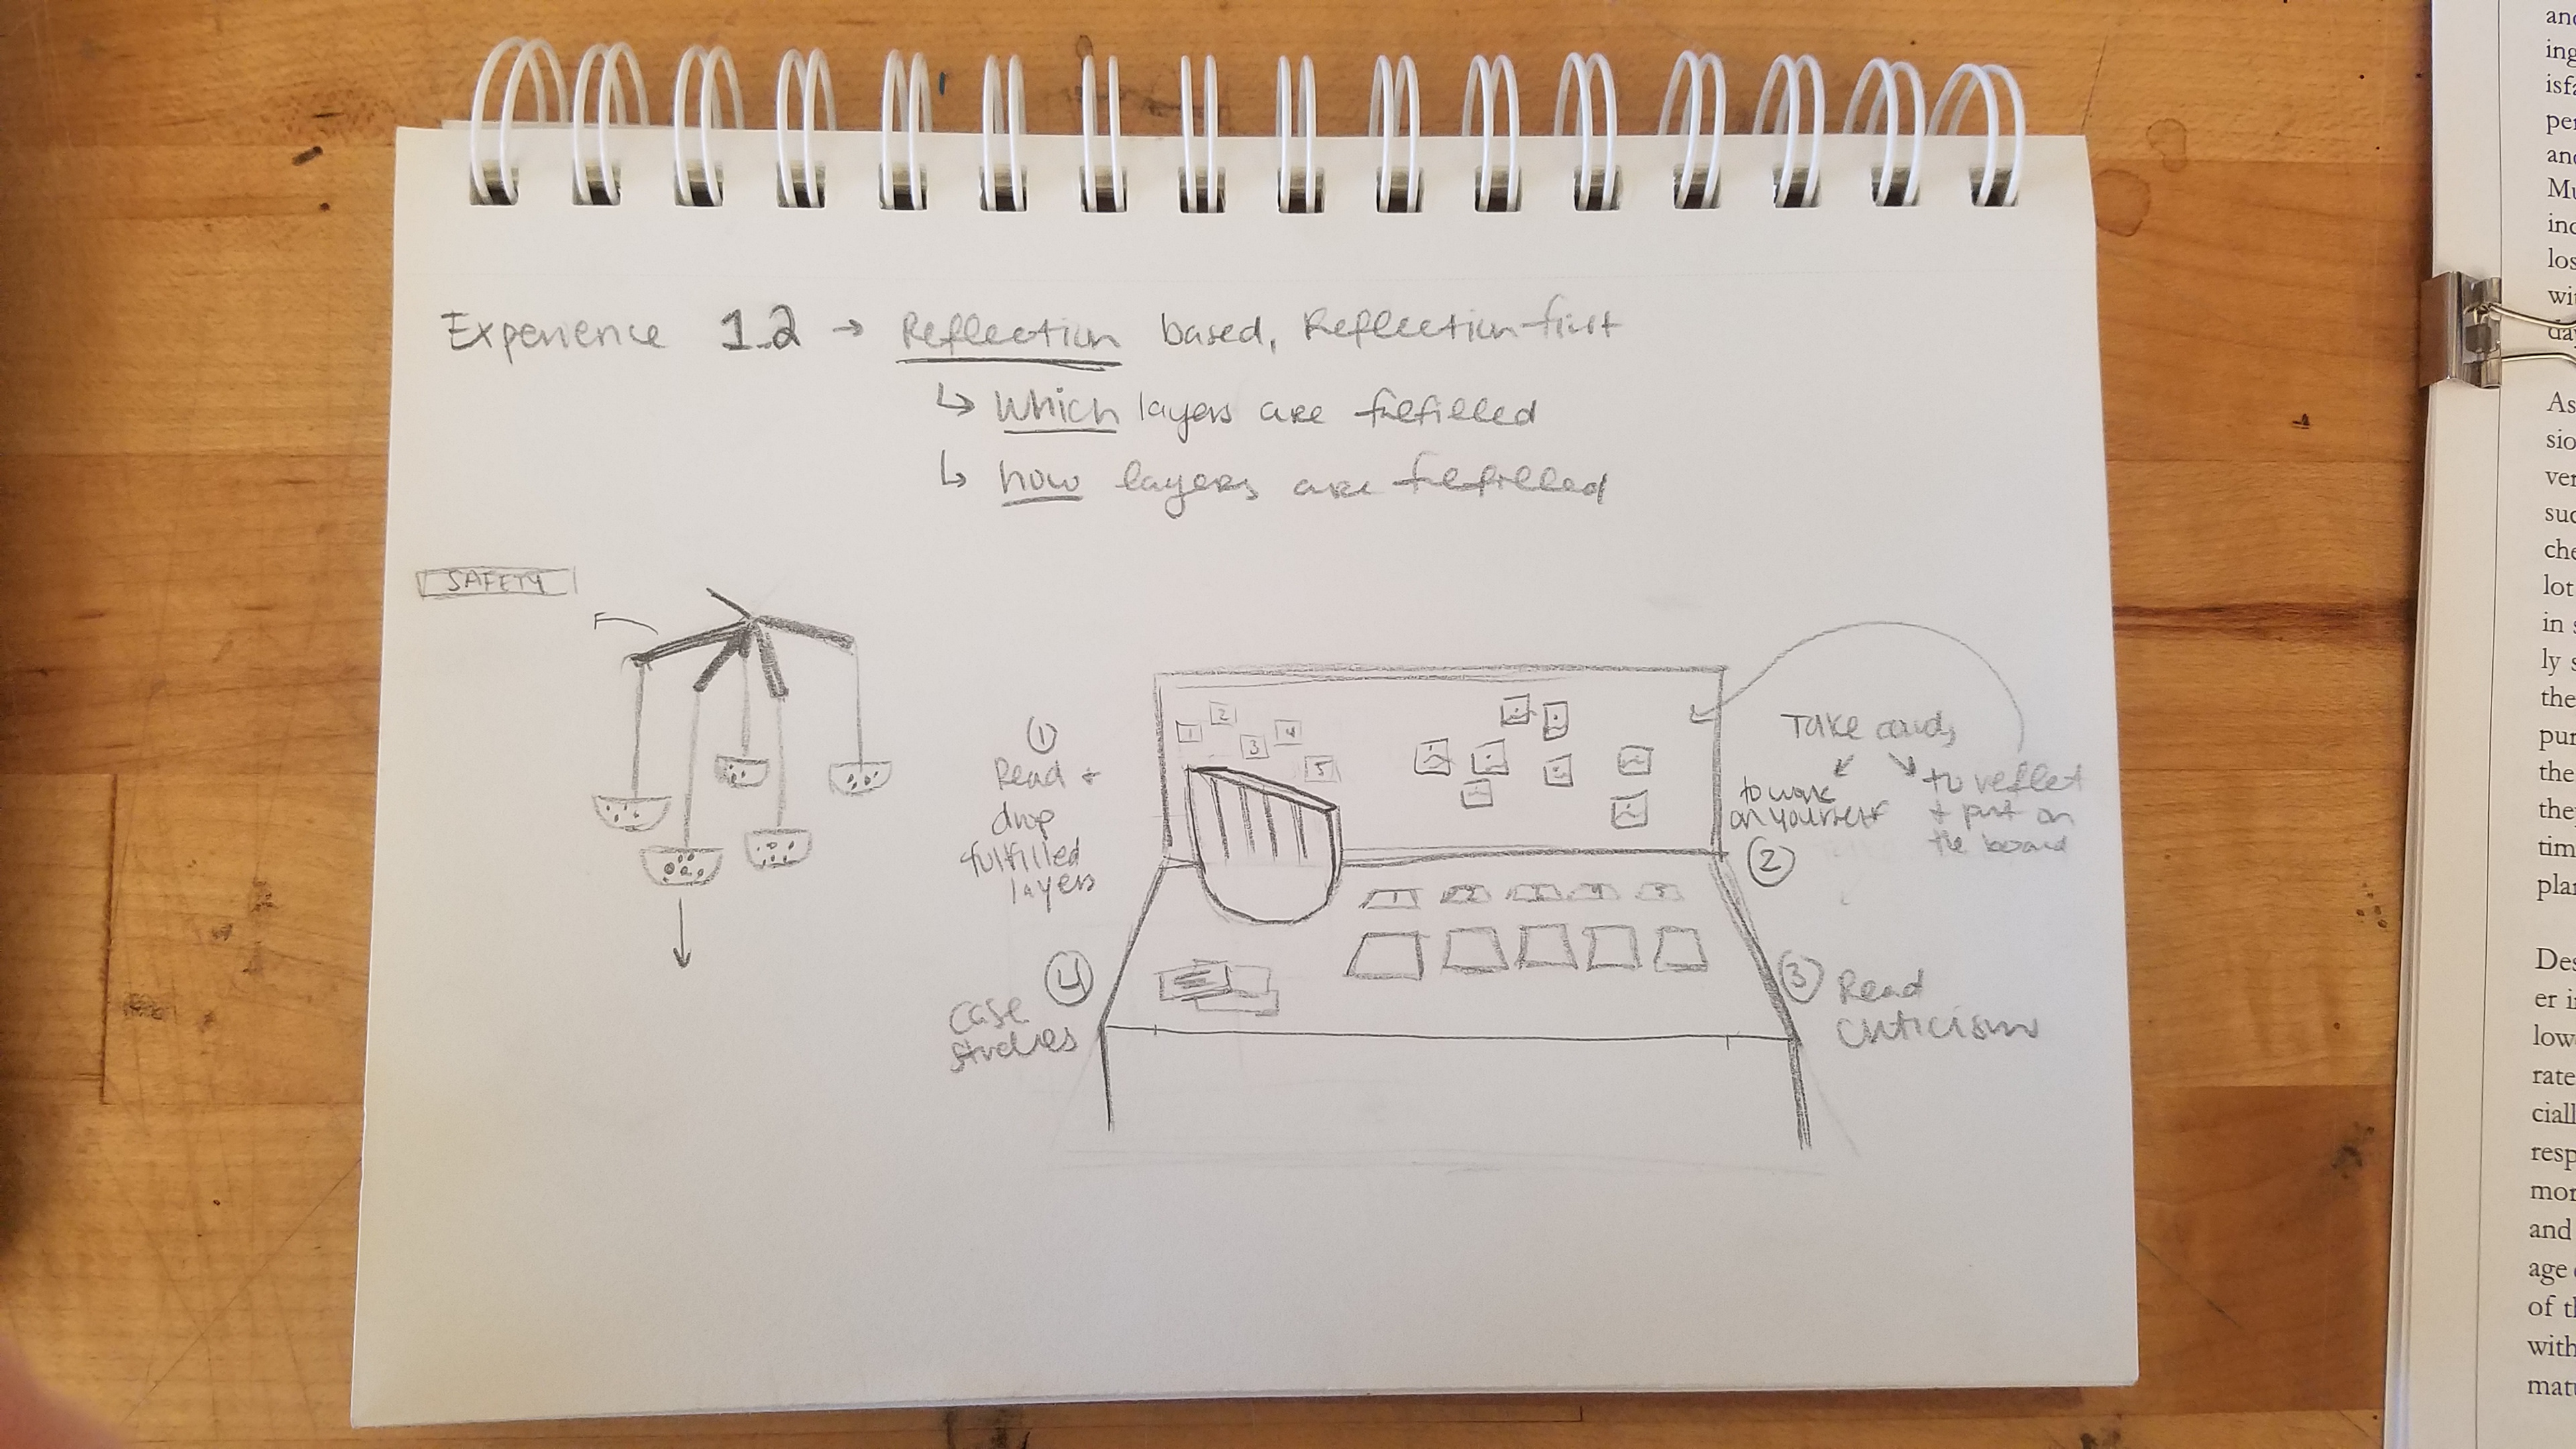 Experience 1.2 → Reflection based, Reflection-first
↳ Which layers are fulfilled
↳ how layers are fulfilled
SAFETY
1
2
3
4
5
①
Read +
drop
fulfilled
layers
Take cards
to work
on yourself
to reflect
+ put on
the board
②
1 2 3 4 5
③ Read
Criticism
④
Case
studies
and
ing
per
and
Mu
los
wit
day
As
sio
ver
suc
che
lot
in s
ly s
the
pur
the
they
tim
plan
Des
er i
low
rate
ciall
resp
mor
and
age
of th
with
matu